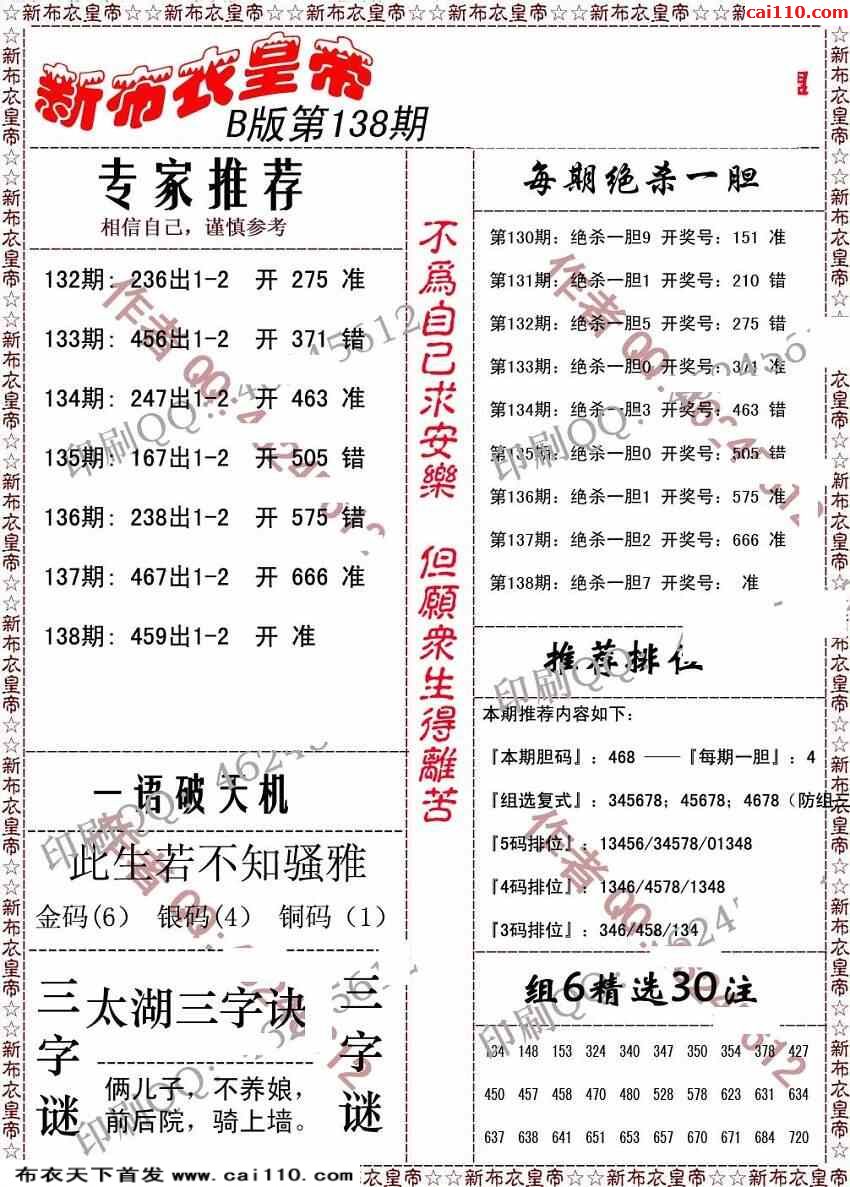 ☆☆新布衣皇帝☆☆新布衣皇帝☆☆新布衣皇帝☆☆新布衣皇帝☆☆新布衣皇帝☆☆新
cai110.com
新布衣皇帝
B版第138期
专家推荐
相信自己，谨慎参考
132期: 236出1-2 开 275 准
133期: 456出1-2 开 371 错
134期: 247出1-2 开 463 准
135期: 167出1-2 开 505 错
136期: 238出1-2 开 575 错
137期: 467出1-2 开 666 准
138期: 459出1-2 开 准
一语破天机
此生若不知骚雅
金码(6) 银码(4) 铜码（1）
三字谜
太湖三字诀
俩儿子，不养娘，
前后院，骑上墙。
三字谜
不爲自己求安樂 但願衆生得離苦
每期绝杀一胆
第130期：绝杀一胆9 开奖号：151 准
第131期：绝杀一胆1 开奖号：210 错
第132期：绝杀一胆5 开奖号：275 错
第133期：绝杀一胆0 开奖号：371 准
第134期：绝杀一胆3 开奖号：463 错
第135期：绝杀一胆0 开奖号：505 错
第136期：绝杀一胆1 开奖号：575 准
第137期：绝杀一胆2 开奖号：666 准
第138期：绝杀一胆7 开奖号： 准
推荐排位
本期推荐内容如下：
『本期胆码』：468 ——『每期一胆』：4
『组选复式』：345678；45678；4678（防组三
『5码排位』：13456/34578/01348
『4码排位』：1346/4578/1348
『3码排位』：346/458/134
组6精选30注
134 148 153 324 340 347 350 354 378 427
450 457 458 470 480 528 578 623 631 634
637 638 641 651 653 657 670 671 684 720
布衣天下首发 www.cai110.com
衣皇帝☆☆新布衣皇帝☆☆新布衣皇帝☆☆新布衣皇帝☆☆